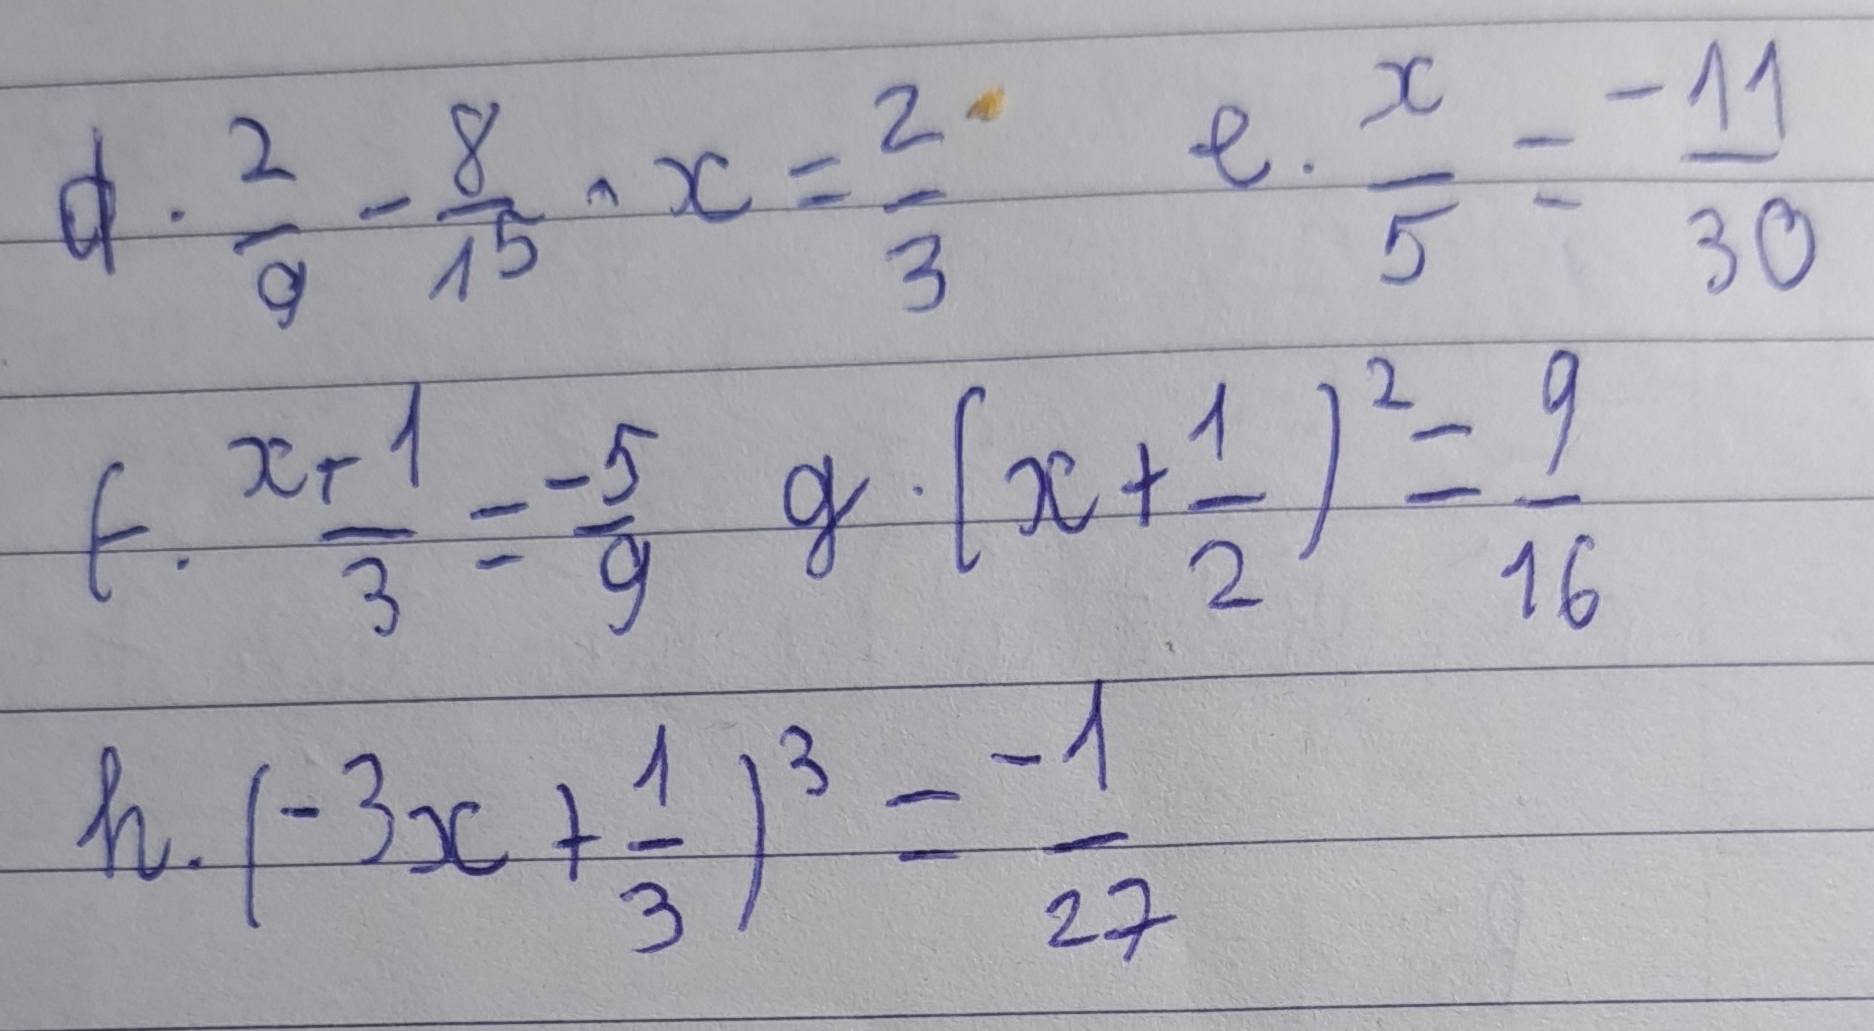 d. 2/9 - 8/15 · x = 2/3 e. x/5 = -11/30
f. x+1/3 = -5/9 g. (x + 1/2)² = 9/16
h. (-3x + 1/3)³ = -1/27